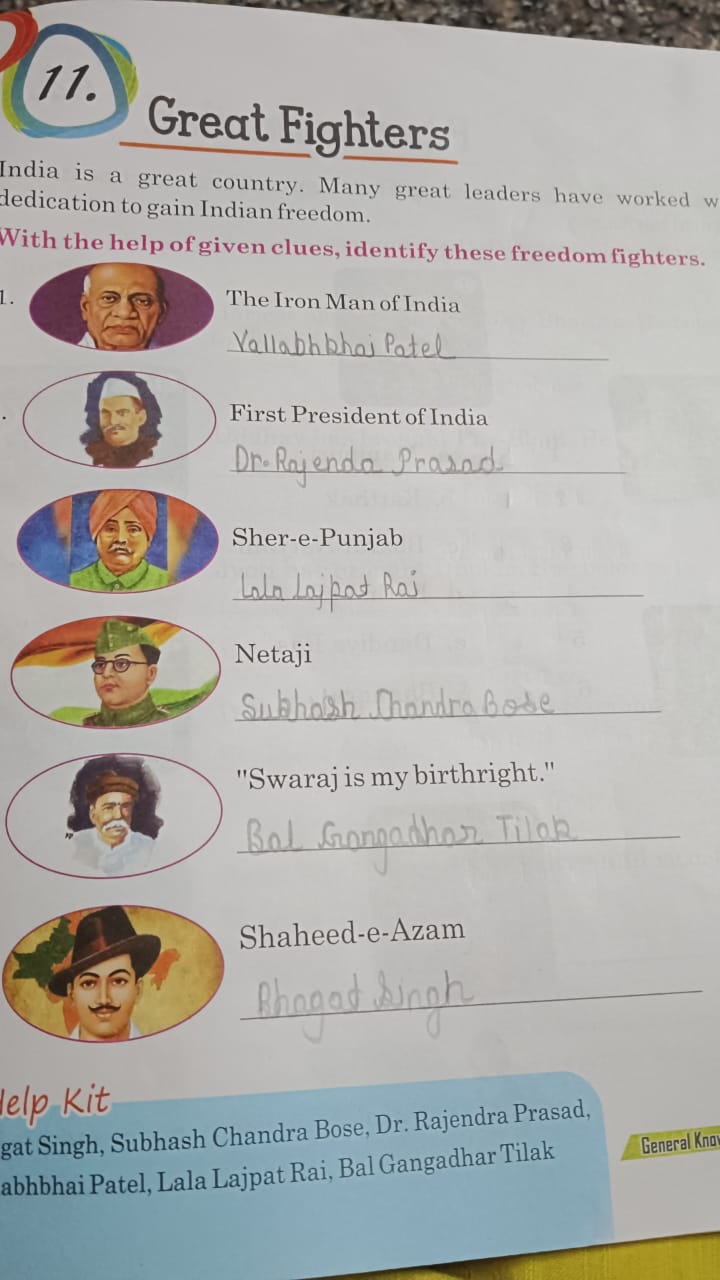 11.
Great Fighters
India is a great country. Many great leaders have worked w
dedication to gain Indian freedom.
With the help of given clues, identify these freedom fighters.
1.
The Iron Man of India
Vallabhbhai Patel
First President of India
Dr. Rajenda Prasad
Sher-e-Punjab
Lala Lajpat Rai
Netaji
Subhash Chandra Bose
"Swaraj is my birthright."
Bal Gangadhar Tilak
Shaheed-e-Azam
Bhagat Singh
Help Kit
gat Singh, Subhash Chandra Bose, Dr. Rajendra Prasad,
abhbhai Patel, Lala Lajpat Rai, Bal Gangadhar Tilak
General Know